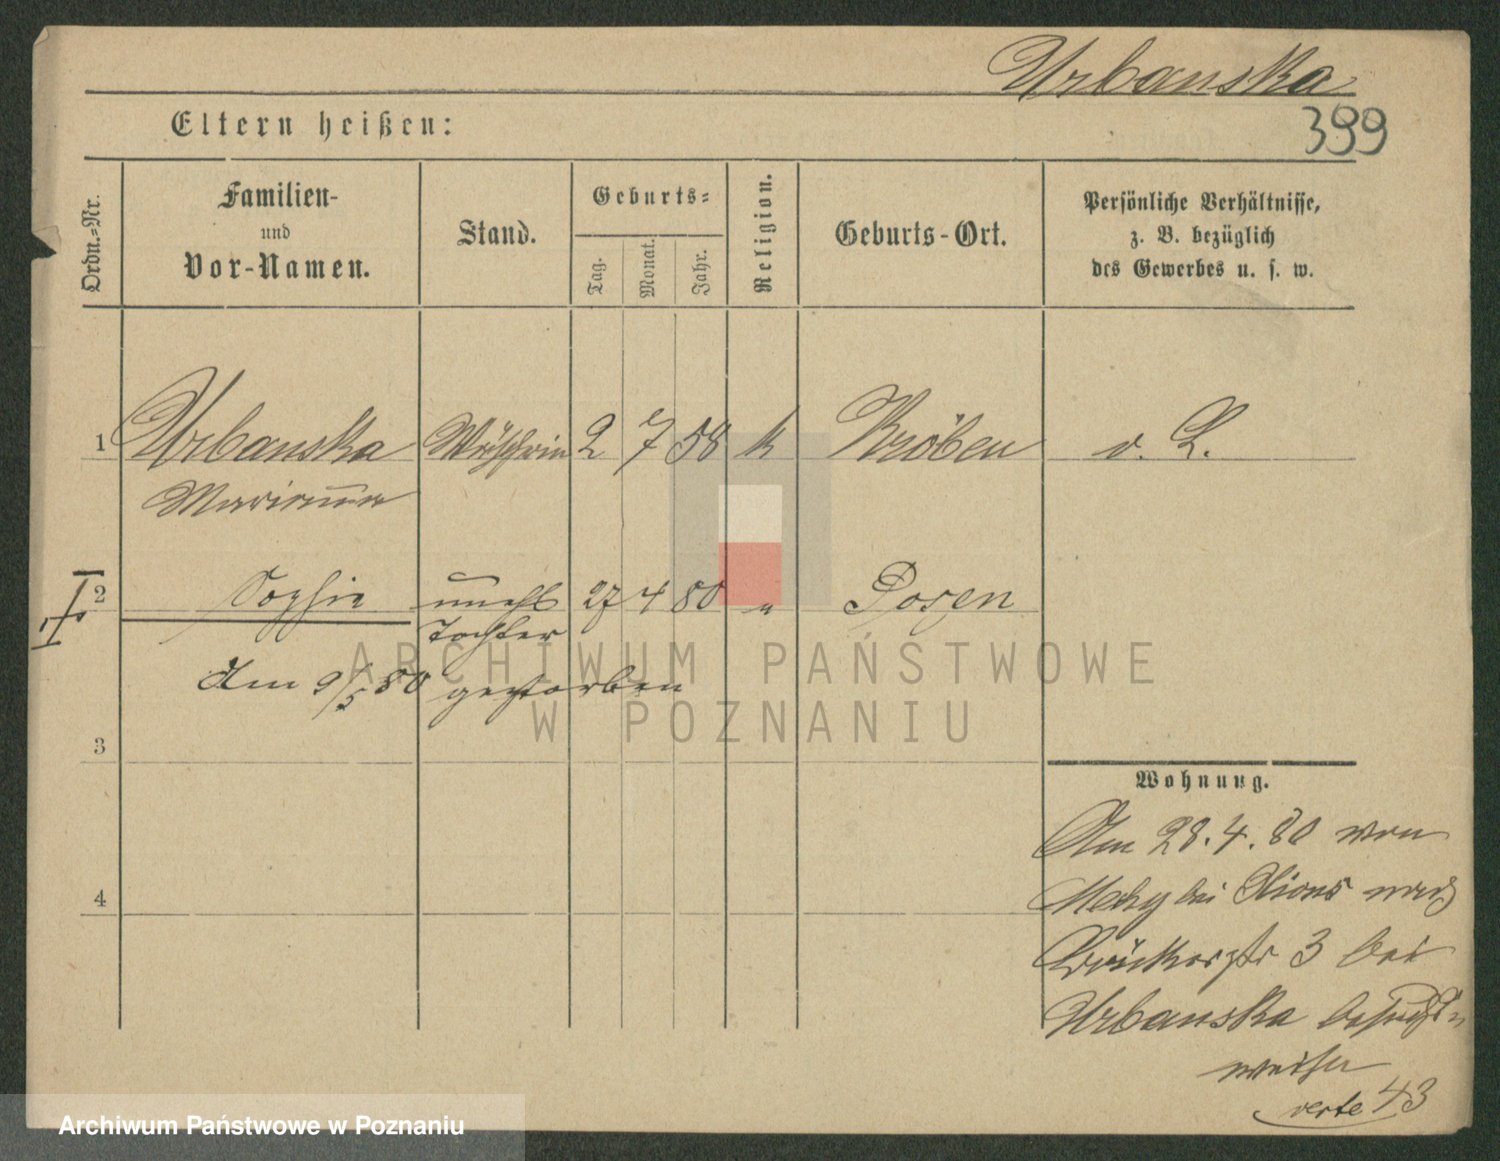 Urbanska
399
Eltern heißen:
Ordn.-Nr.
Familien-
und
Vor-Namen.
Stand.
Geburts-
Tag.
Monat.
Jahr.
Religion.
Geburts-Ort.
Persönliche Verhältnisse,
z. B. bezüglich
des Gewerbes u. s. w.
1 Urbanska Wäscherin 2 7 58 k Kröben v. L.
Marianna
2 Sophie unehl 27 4 80 " Posen
Tochter
Am 9/5 80 gestorben
3
Wohnung.
Am 28. 4. 80 von
bei Xions nach
3 bei
4
Urbanska besuchs-
weise
verte 43
ARCHIWUM PAŃSTWOWE
W POZNANIU
Archiwum Państwowe w Poznaniu